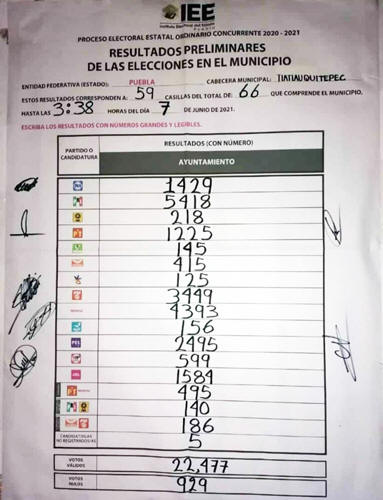 IEE
Instituto Electoral del Estado
Puebla
PROCESO ELECTORAL ESTATAL ORDINARIO CONCURRENTE 2020 - 2021
RESULTADOS PRELIMINARES
DE LAS ELECCIONES EN EL MUNICIPIO
ENTIDAD FEDERATIVA (ESTADO): PUEBLA CABECERA MUNICIPAL: TLATLAUQUITEPEC
ESTOS RESULTADOS CORRESPONDEN A: 59 CASILLAS DEL TOTAL DE: 66 QUE COMPRENDE EL MUNICIPIO,
HASTA LAS 3:38 HORAS DEL DÍA 7 DE JUNIO DE 2021.
ESCRIBA LOS RESULTADOS CON NÚMEROS GRANDES Y LEGIBLES.
PARTIDO O CANDIDATURA RESULTADOS (CON NÚMERO)
AYUNTAMIENTO
PAN 1429
PRI 5418
PRD 218
PT 1225
145
415
125
3449
morena 4393
156
PES 2495
599
1584
PT morena 495
140
186
CANDIDATURAS NO REGISTRADAS 5
VOTOS VÁLIDOS 22,477
VOTOS NULOS 929